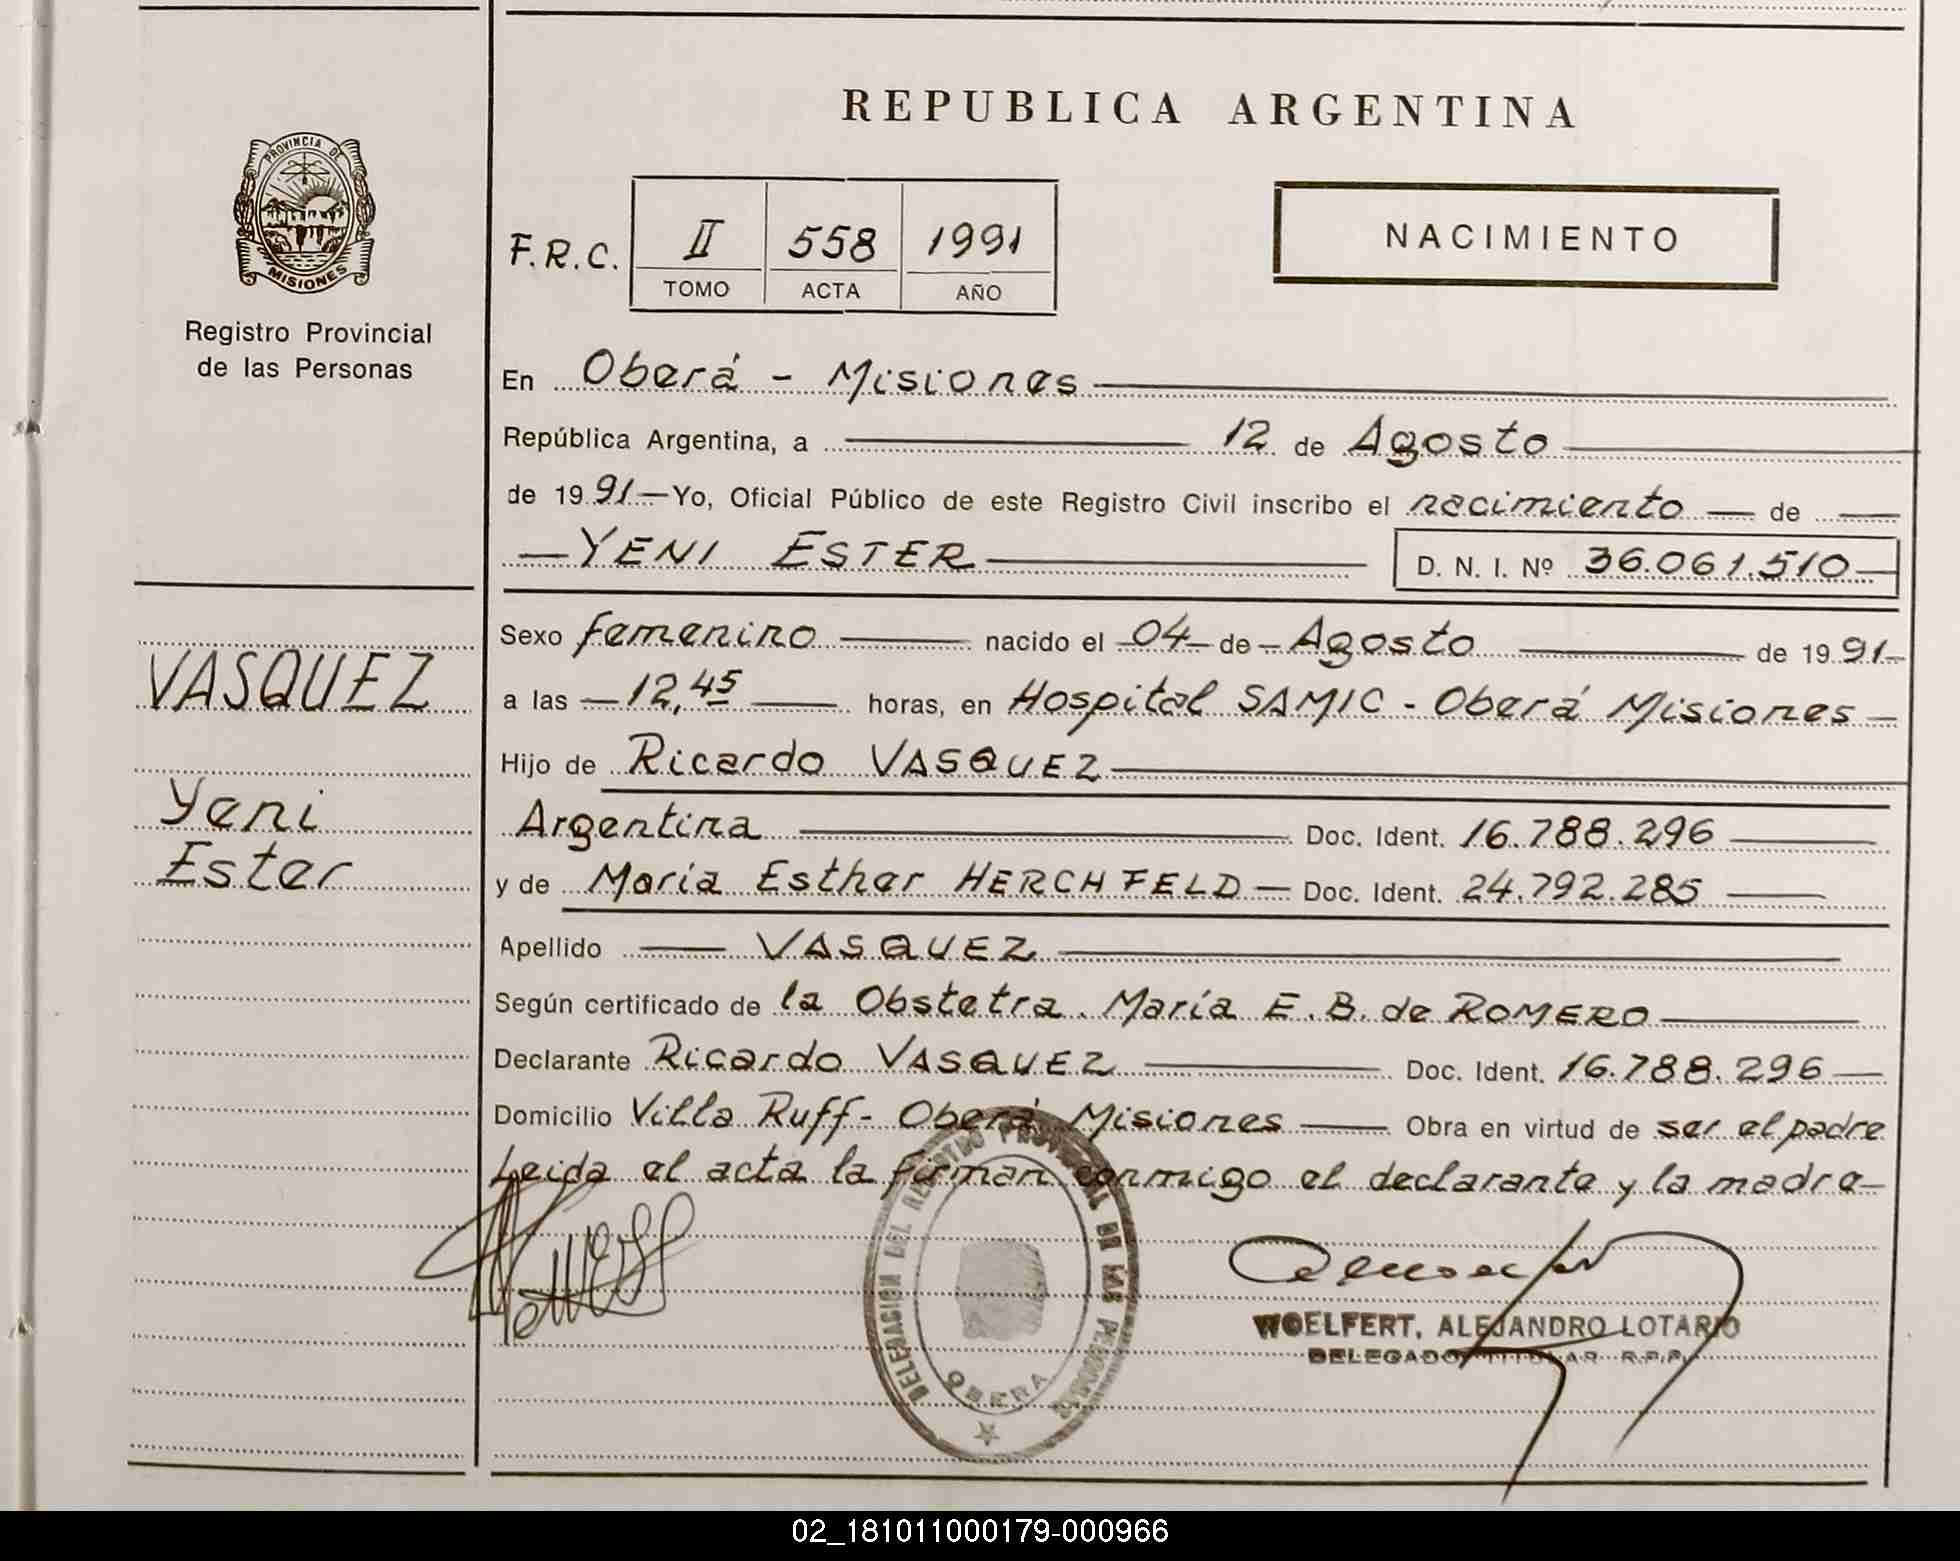 REPUBLICA ARGENTINA
PROVINCIA DE
MISIONES
Registro Provincial
de las Personas
F.R.C.
II 558 1991
TOMO ACTA AÑO
NACIMIENTO
En Oberá - Misiones
República Argentina, a 12 de Agosto
de 1991 Yo, Oficial Público de este Registro Civil inscribo el nacimiento de
YENI ESTER D. N. I. Nº 36.061.510
Sexo femenino nacido el 04 de Agosto de 1991
a las 12,45 horas, en Hospital SAMIC - Oberá Misiones
Hijo de Ricardo VASQUEZ
Argentina Doc. Ident. 16.788.296
y de María Esther HERCHFELD Doc. Ident. 24.792.285
Apellido VASQUEZ
Según certificado de la Obstetra. María E. B. de ROMERO
Declarante Ricardo VASQUEZ Doc. Ident. 16.788.296
Domicilio Villa Ruff - Oberá Misiones Obra en virtud de ser el padre
Leida el acta la firman conmigo el declarante y la madre
VASQUEZ
Yeni
Ester
DELEGACION DEL REGISTRO PROVINCIAL DE LAS PERSONAS
OBERA
WOELFERT, ALEJANDRO LOTARIO
DELEGADO TITULAR R.P.P.
02_181011000179-000966